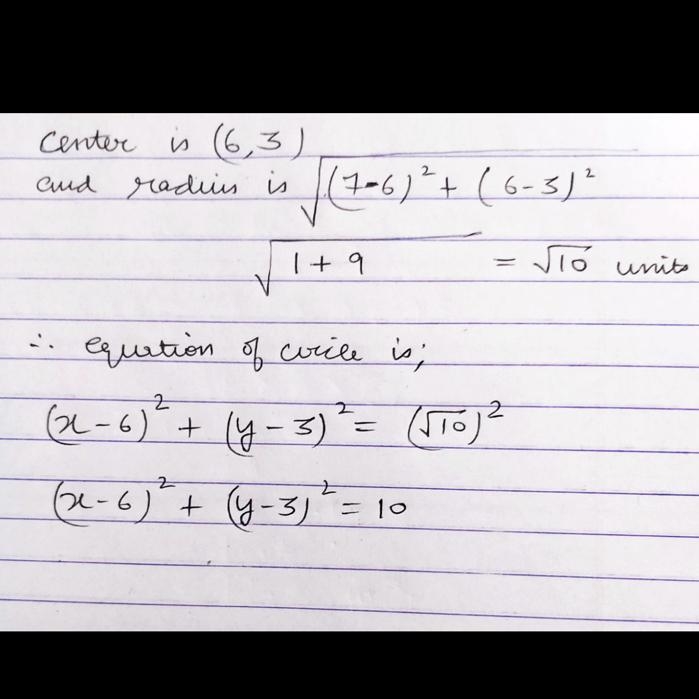 center is (6,3)
and radius is √(7-6)² + (6-3)²
√1+9 = √10 units
∴ equation of circle is;
(x-6)² + (y-3)² = (√10)²
(x-6)² + (y-3)² = 10